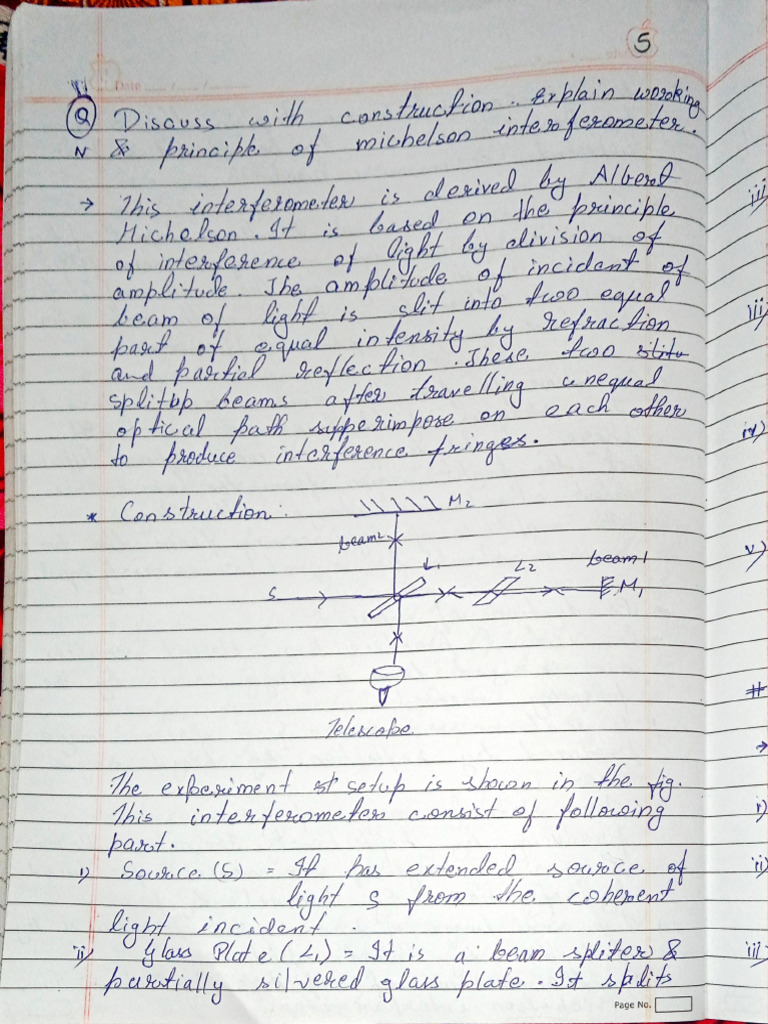 5
Q Discuss with construction. Explain woroking
N & principle of michelson interoferometer.
→ This interferometer is derived by Alberot
Michelson. It is based on the principle
of interference of light by division of
amplitude. The amplitude of incident of
beam of light is slit into two equal
part of equal intensity by refraction
and partial reflection. These two
splitup beams after travelling unequal
optical path supperimpose on each other
to produce interference fringes.
* Construction:
M2
beam2
L1
L2
beam1
S
M1
Telescope
The experiment setup is shown in the fig.
This interferometer consist of following
part.
i) Source (S) = It has extended source of
light S from the coherent
light incident.
ii) Glass Plate (L1) = It is a beam spliter &
partially silvered glass plate. It splits
Page No.
iii
iii)
iv)
v)
#
→
i)
ii)
iii)